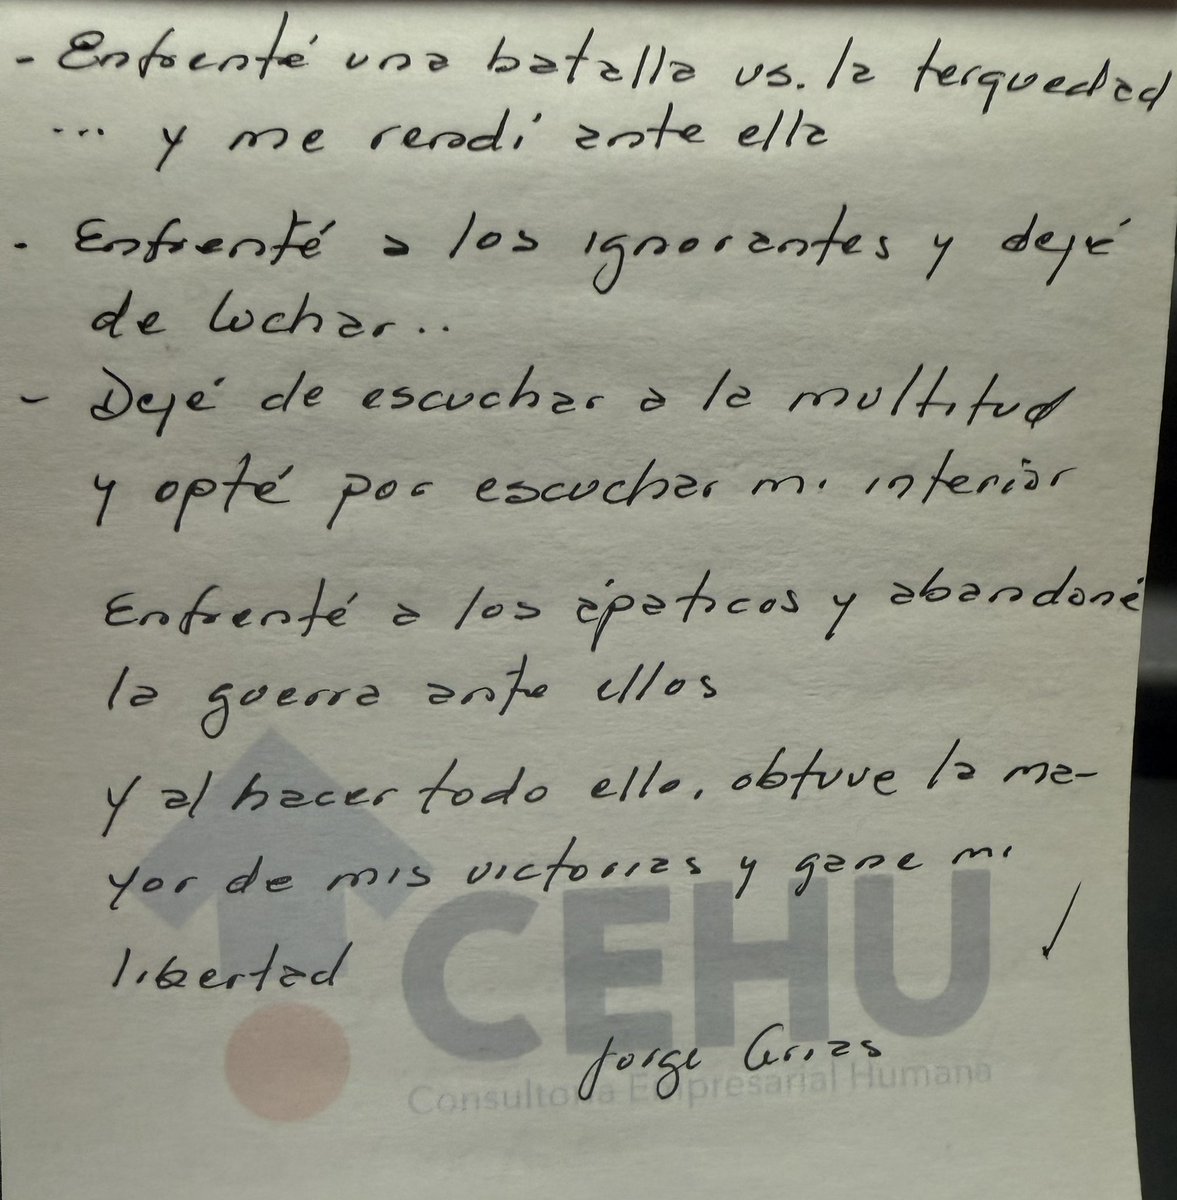 - Enfrenté una batalla vs. la terquedad
... y me rendí ante ella
- Enfrenté a los ignorantes y dejé
de luchar..
- Dejé de escuchar a la multitud
y opté por escuchar mi interior
Enfrenté a los ápaticos y abandoné
la guerra ante ellos
Y al hacer todo ello, obtuve la ma-
yor de mis victorias y gane mi
libertad
CEHU
Jorge Arias
Consultoria Empresarial Humana